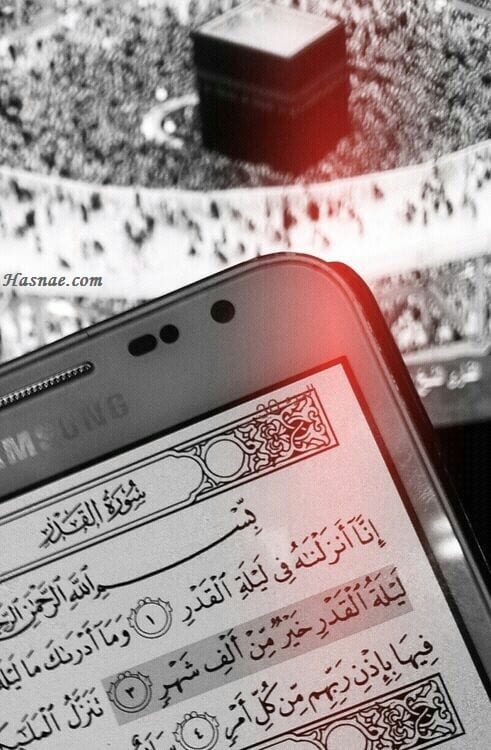 Hasnae.com
AMSUNG
سُورَةُ القَدْرِ
بِسْمِ اللَّهِ الرَّحْمَٰنِ
إِنَّآ أَنزَلْنَٰهُ فِى لَيْلَةِ ٱلْقَدْرِ ١ وَمَآ أَدْرَىٰكَ مَا
لَيْلَةُ ٱلْقَدْرِ خَيْرٌ مِّنْ أَلْفِ شَهْرٍ ٣ تَنَزَّلُ
فِيهَا بِإِذْنِ رَبِّهِم مِّن كُلِّ أَمْرٍ ٤